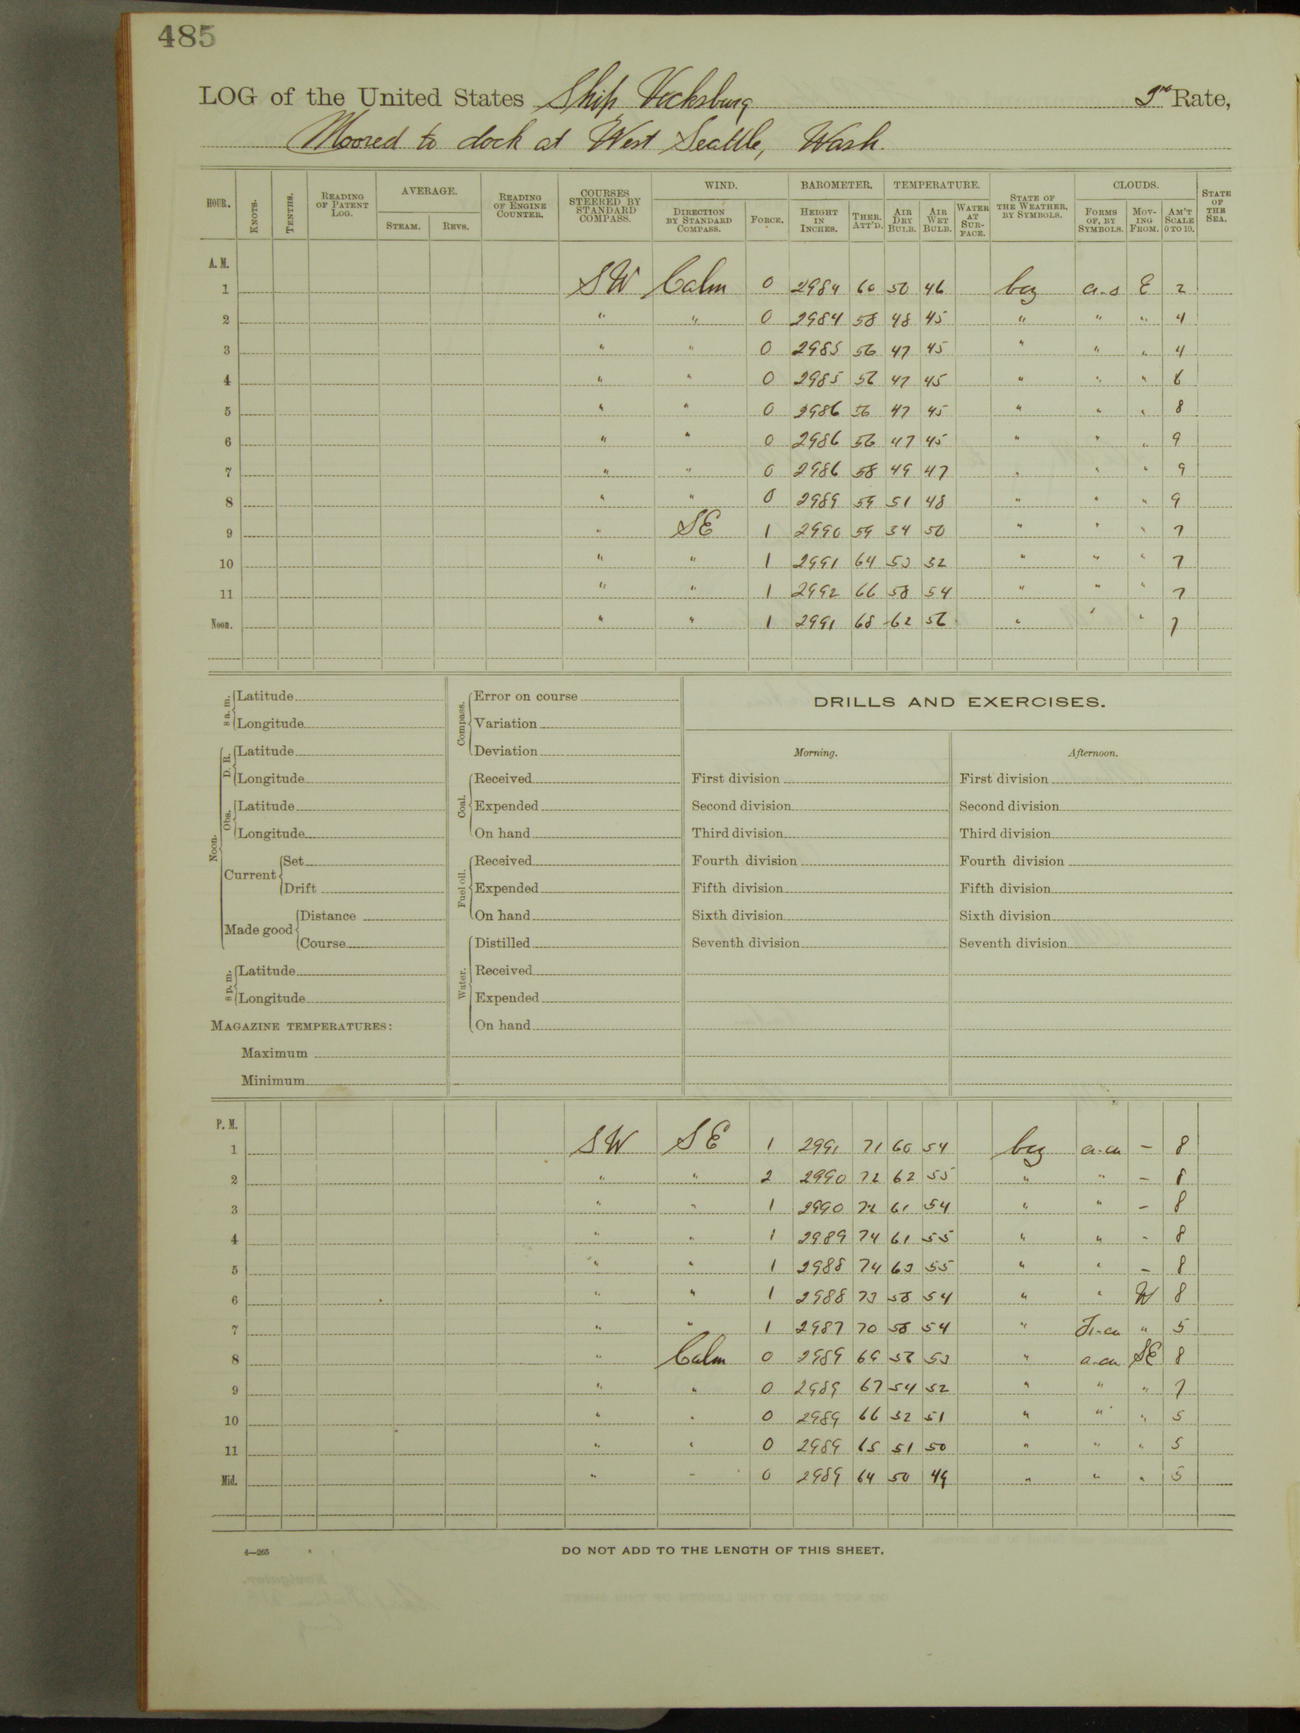 485
LOG of the United States Ship Vicksburg 3rd Rate,
Moored to dock at West Seattle, Wash.
HOUR. KNOTS. TENTHS. READING OF PATENT LOG. AVERAGE. STEAM. REVS. READING OF ENGINE COUNTER. COURSES STEERED BY STANDARD COMPASS. WIND. DIRECTION BY STANDARD COMPASS. FORCE. BAROMETER. HEIGHT IN INCHES. THER. ATT'D. TEMPERATURE. AIR DRY BULB. AIR WET BULB. WATER AT SURFACE. STATE OF THE WEATHER, BY SYMBOLS. CLOUDS. FORMS OF, BY SYMBOLS. MOVING FROM. AM'T SCALE 0 TO 10. STATE OF THE SEA.
A. M.
1 SW Calm 0 2984 60 50 46 bcz a-s E 2
2 " " 0 2984 58 48 45 " " " 4
3 " " 0 2985 56 47 45 " " " 4
4 " " 0 2985 56 47 45 " " " 6
5 " " 0 2986 56 47 45 " " " 8
6 " " 0 2986 56 47 45 " " " 9
7 " " 0 2986 58 49 47 " " " 9
8 " " 0 2989 59 51 48 " " " 9
9 " SE 1 2990 59 54 50 " " " 7
10 " " 1 2991 64 53 52 " " " 7
11 " " 1 2992 66 58 54 " " " 7
Noon. " " 1 2991 68 62 56 " " " 7
8 a. m. Latitude
Longitude
Noon. D. R. Latitude
Longitude
Obs. Latitude
Longitude
Current Set
Drift
Made good Distance
Course
8 p. m. Latitude
Longitude
MAGAZINE TEMPERATURES:
Maximum
Minimum
Compass. Error on course
Variation
Deviation
Coal. Received
Expended
On hand
Fuel oil. Received
Expended
On hand
Water. Distilled
Received
Expended
On hand
DRILLS AND EXERCISES.
Morning. Afternoon.
First division First division
Second division Second division
Third division Third division
Fourth division Fourth division
Fifth division Fifth division
Sixth division Sixth division
Seventh division Seventh division
P. M.
1 SW SE 1 2991 71 60 54 bcz a-cu – 8
2 " " 2 2990 72 62 55 " " – 8
3 " " 1 2990 72 61 54 " " – 8
4 " " 1 2989 74 61 55 " " - 8
5 " " 1 2988 74 63 55 " " – 8
6 " " 1 2988 73 58 54 " " W 8
7 " " 1 2987 70 58 54 " Fr-cu " 5
8 " Calm 0 2989 69 56 53 " a-cu SE 8
9 " " 0 2989 67 54 52 " " " 7
10 " " 0 2989 66 52 51 " " " 5
11 " " 0 2989 65 51 50 " " " 5
Mid. " " 0 2989 64 50 49 " " " 5
4—265
DO NOT ADD TO THE LENGTH OF THIS SHEET.